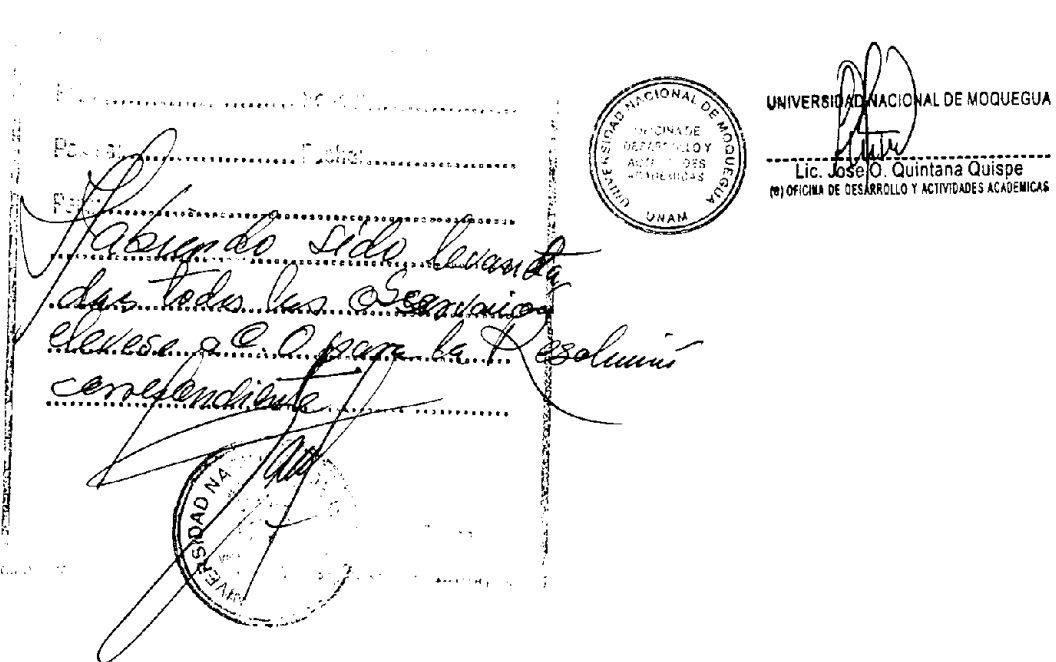 Pase a: Fecha:
Para:
Habiendo sido levanta
das todas las Observacion
elevese a C.O para la Resolución
correspondiente
UNIVERSIDAD NA
UNIVERSIDAD NACIONAL DE MOQUEGUA
OFICINA DE
DESARROLLO Y
ACTIVIDADES
ACADEMICAS
UNAM
UNIVERSIDAD NACIONAL DE MOQUEGUA
Lic. Jose O. Quintana Quispe
(e) OFICINA DE DESARROLLO Y ACTIVIDADES ACADEMICAS